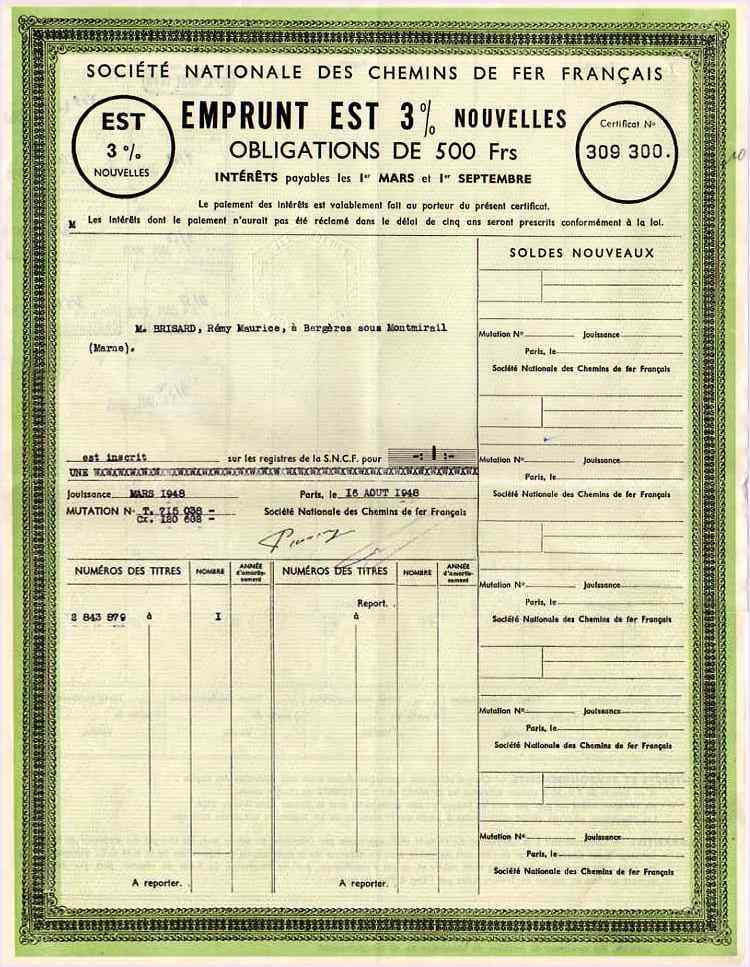 SOCIÉTÉ NATIONALE DES CHEMINS DE FER FRANÇAIS
EST
3 %
NOUVELLES
EMPRUNT EST 3% NOUVELLES
OBLIGATIONS DE 500 Frs
INTÉRÊTS payables les 1er MARS et 1er SEPTEMBRE
Certificat No
309 300.
Le paiement des intérêts est valablement fait au porteur du présent certificat.
M Les intérêts dont le paiement n'aurait pas été réclamé dans le délai de cinq ans seront prescrits conformément à la loi.
M. BRISARD, Rémy Maurice, à Bergères sous Montmirail
(Marne).
est inscrit sur les registres de la S.N.C.F. pour -: 1 :-
UNE
Jouissance MARS 1948 Paris, le 16 AOUT 1948
MUTATION No T. 715 038 - Société Nationale des Chemins de fer Français
CX. 120 602 -
NUMÉROS DES TITRES NOMBRE ANNÉE d'amortissement NUMÉROS DES TITRES NOMBRE ANNÉE d'amortissement
Report. .
2 843 879 à I à
A reporter. A reporter.
SOLDES NOUVEAUX
Mutation No Jouissance
Paris, le
Société Nationale des Chemins de fer Français
Mutation No Jouissance
Paris, le
Société Nationale des Chemins de fer Français
Mutation No Jouissance
Paris, le
Société Nationale des Chemins de fer Français
Mutation No Jouissance
Paris, le
Société Nationale des Chemins de fer Français
Mutation No Jouissance
Paris, le
Société Nationale des Chemins de fer Français